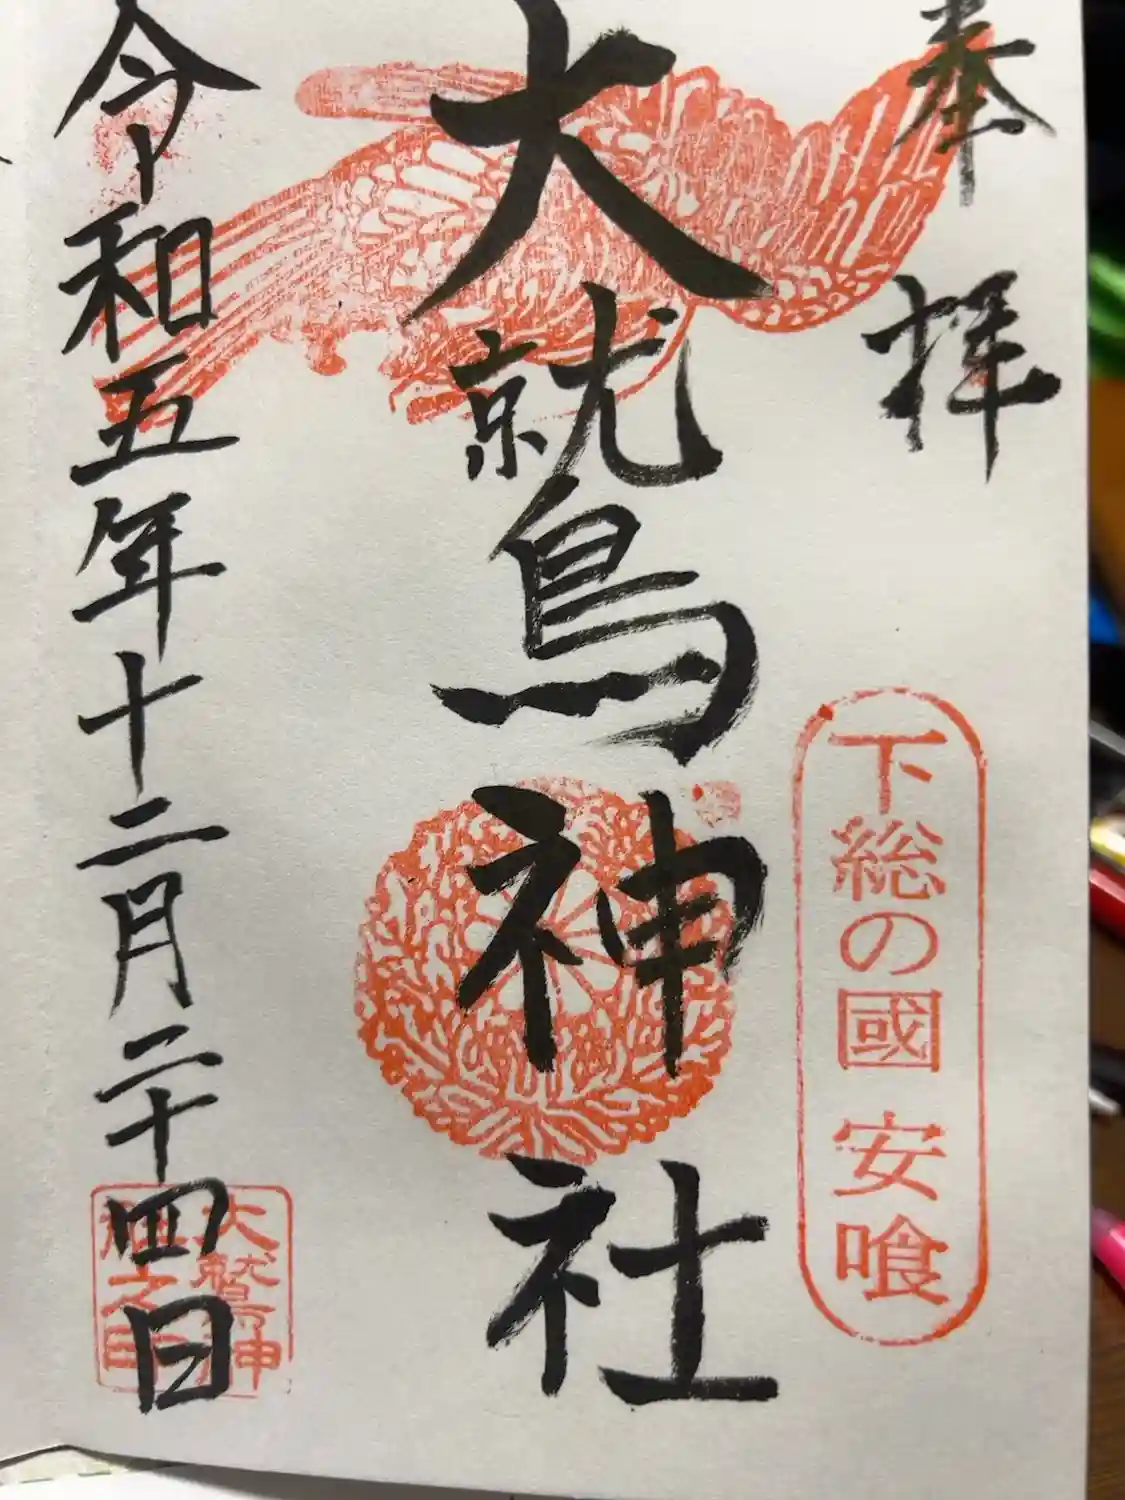 奉拝
下総の國 安喰
大鷲神社
令和五年十二月二十四日
大鷲神社之印